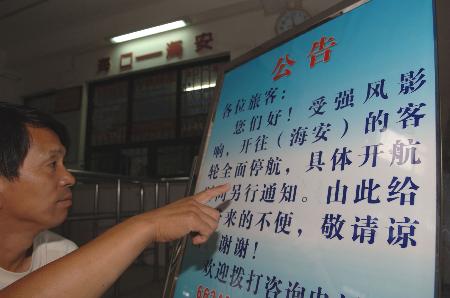 海口—海安
公告
各位旅客：
您们好！受强风影
响，开往（海安）的客
轮全面停航，具体开航
时间另行通知。由此给
来的不便，敬请谅
谢谢！
欢迎拨打咨询电